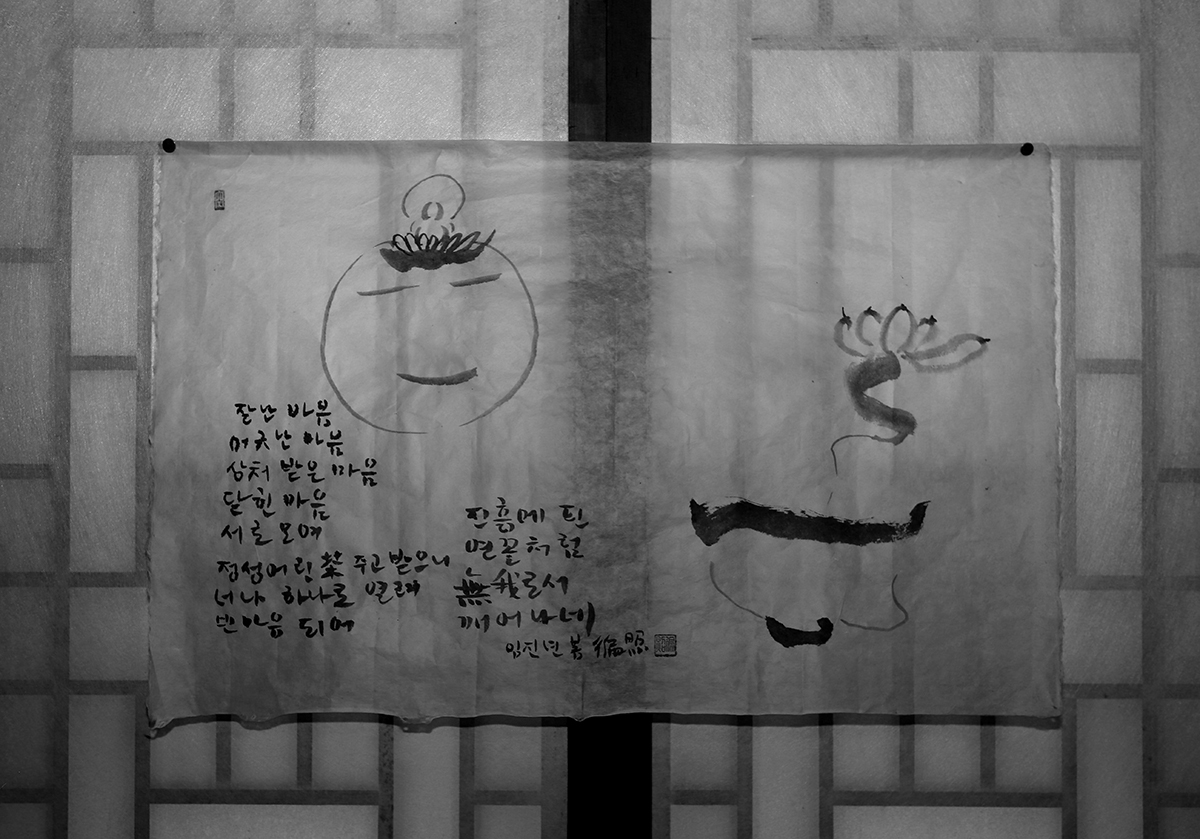 잘난 마음
마음
상처 받은 마음
닫힌 마음
서로 모여
정성어린 茶 주고받으니
너나 하나로
빈마음 되어
진흙에 핀
연꽃처럼
無我로서
깨어나네
임진년 봄